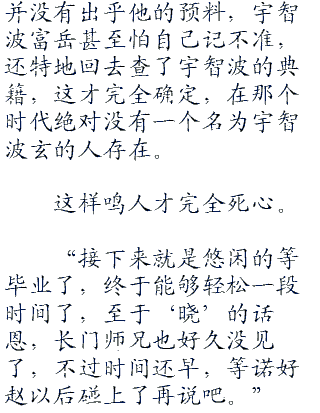 并没有出乎他的预料，宇智
波富岳甚至怕自己记不准，
还特地回去查了宇智波的典
籍，这才完全确定，在那个
时代绝对没有一个名为宇智
波玄的人存在。
这样鸣人才完全死心。
“接下来就是悠闲的等
毕业了，终于能够轻松一段
时间了，至于‘晓’的话
恩，长门师兄也好久没见
了，不过时间还早，等诺好
赵以后碰上了再说吧。”